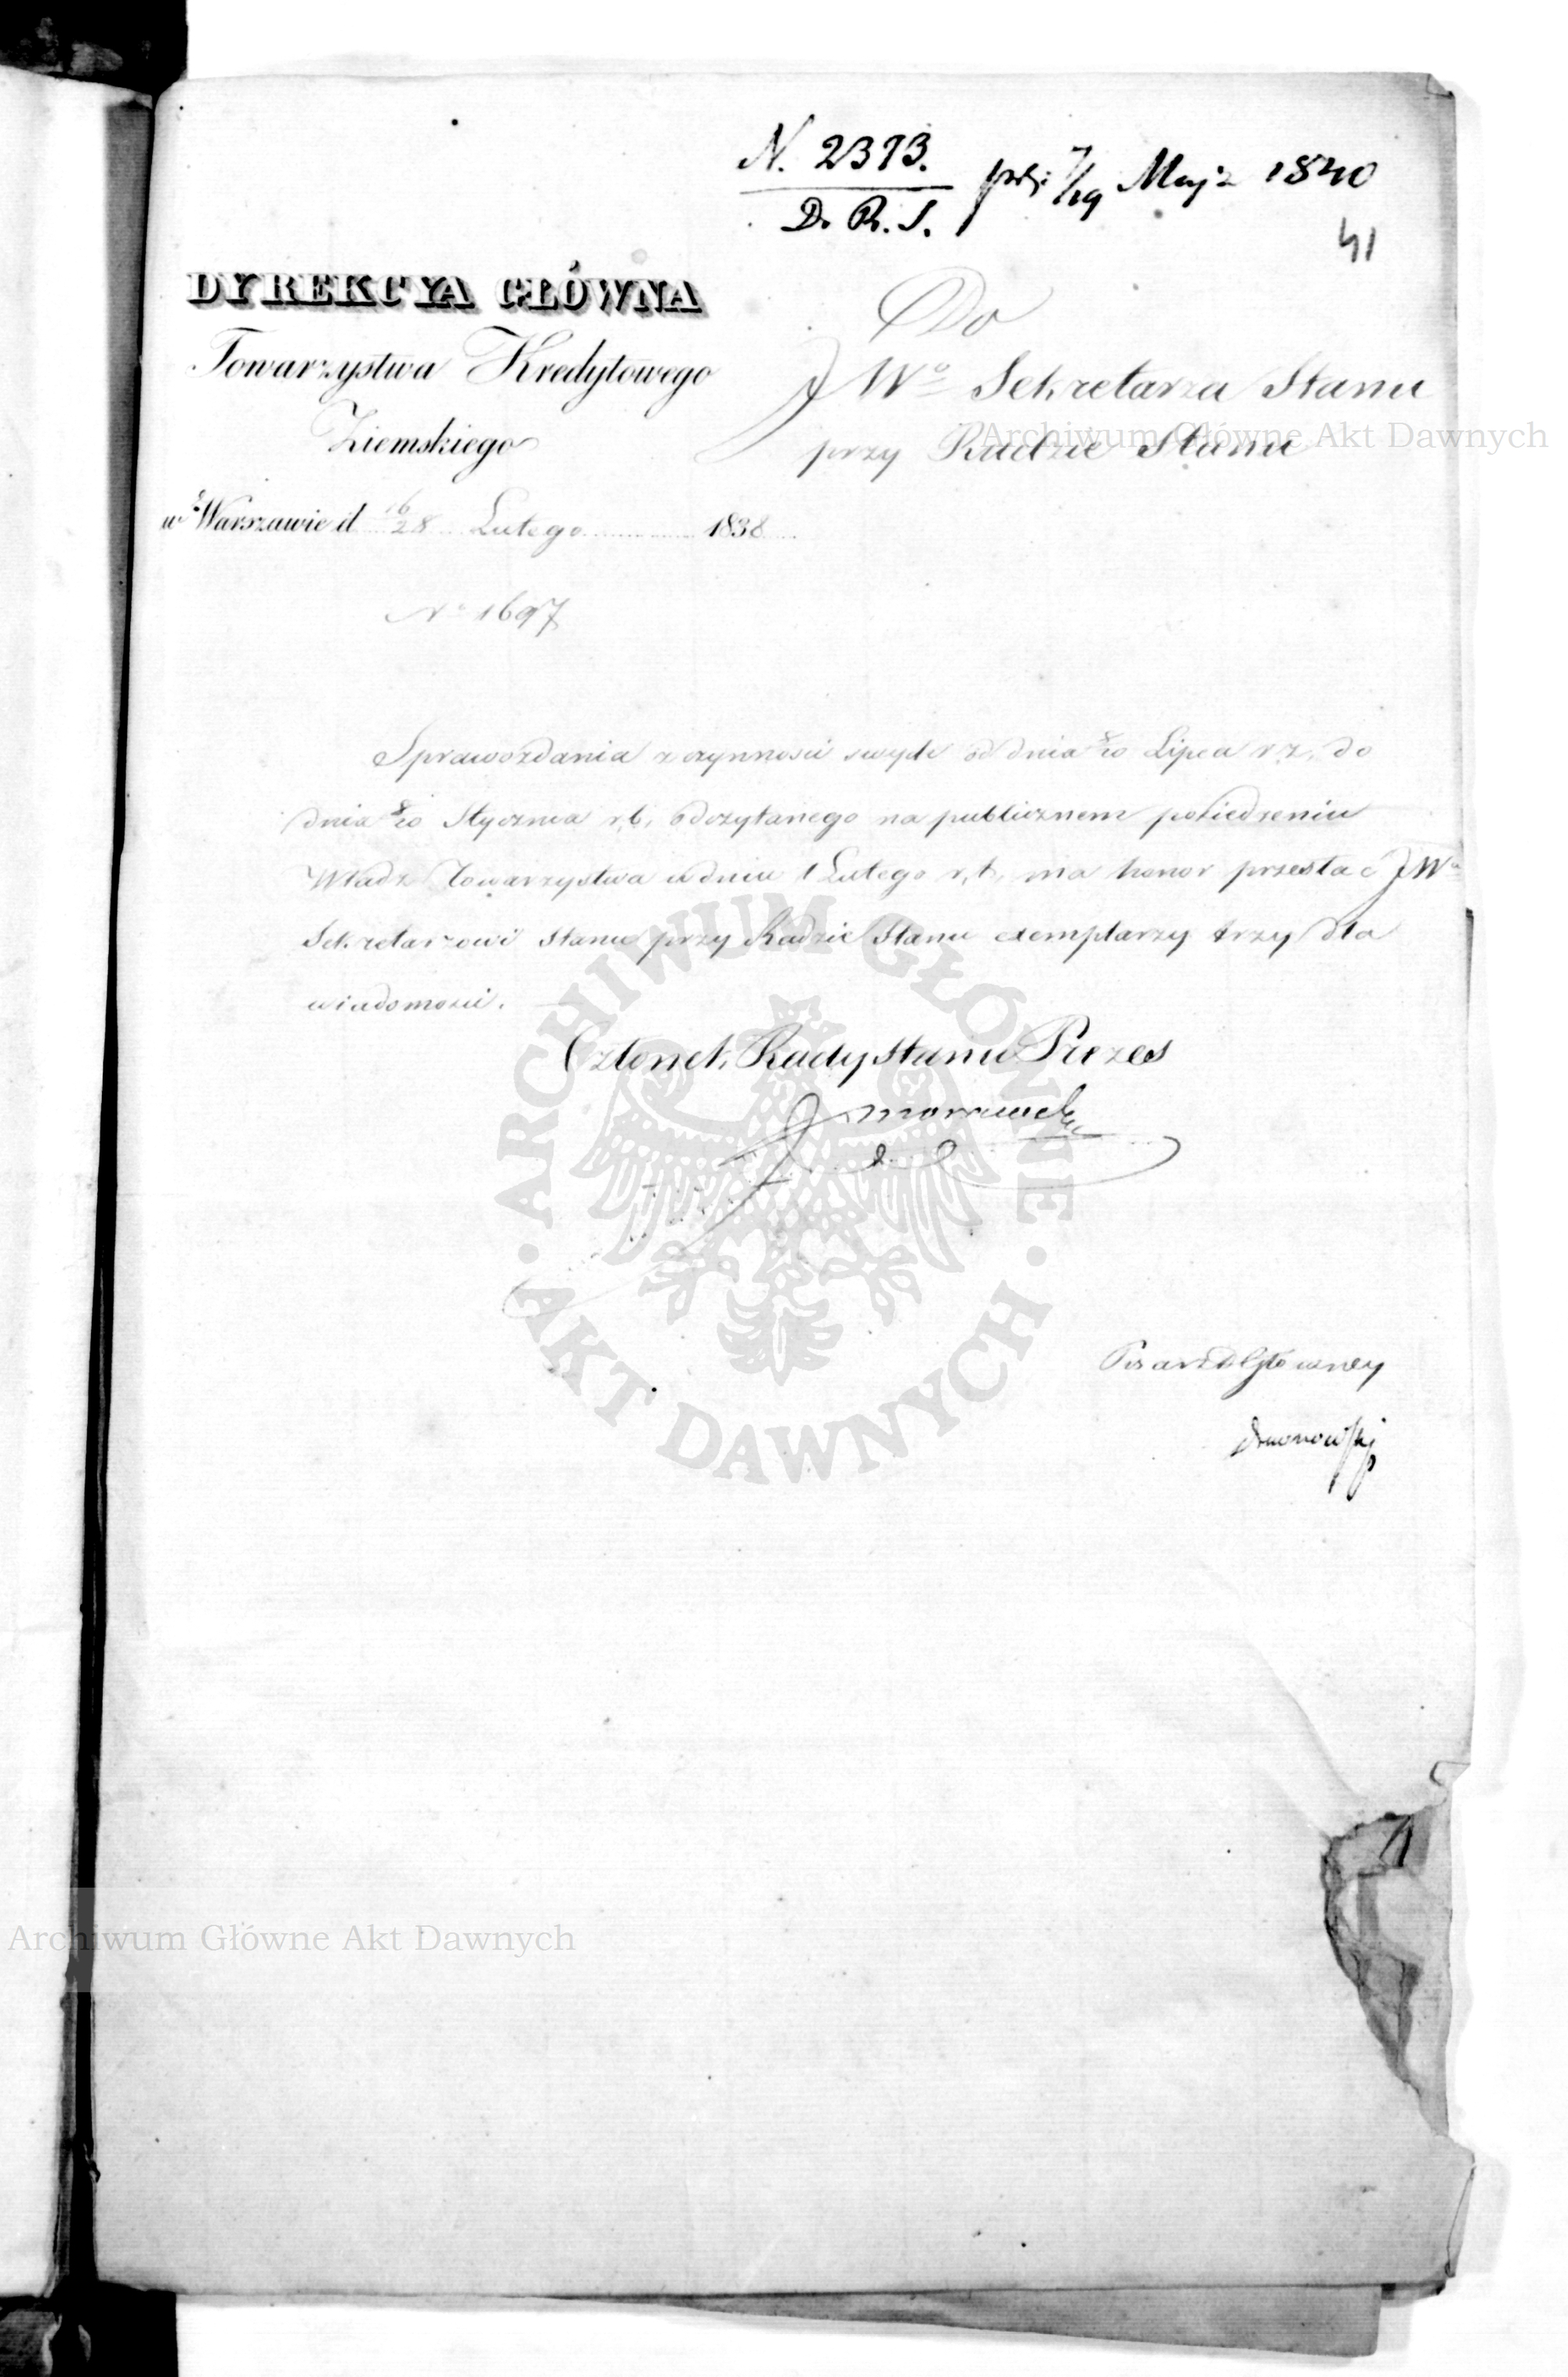 N. 2393.
D. R. S.
prz: 7/19 Maja 1840
41
DYREKCYA GŁÓWNA
Towarzystwa Kredytowego
Ziemskiego
w Warszawie d 16/28 Lutego 1838
No 1697
Do
JWo Sekretarza Stanu
przy Radzie Stanu
Archiwum Główne Akt Dawnych
Sprawozdania z czynności swych od dnia 8/20 Lipca r. z. do
dnia 8/20 Stycznia r. b. odczytanego na publicznem posiedzeniu
Władz Towarzystwa w dniu 1 Lutego r. b. ma honor przesłać JWu
Sekretarzowi Stanu przy Radzie Stanu exemplarzy trzy dla
wiadomości.
Członek Rady Stanu Prezes
Morawski
Pisarz Główney
Drewnowski
ARCHIWUM GŁÓWNE
AKT DAWNYCH
Archiwum Główne Akt Dawnych